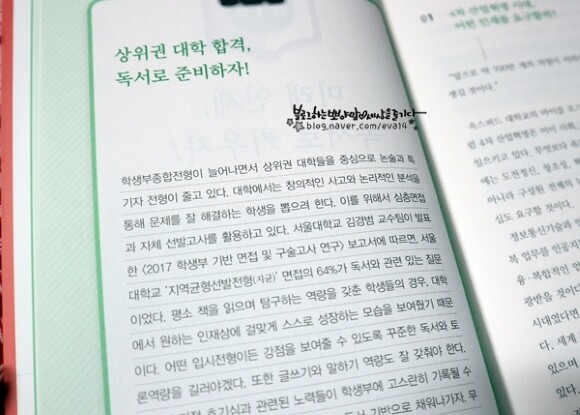 상위권 대학 합격,
독서로 준비하자!
blog.naver.com/eva14
학생부종합전형이 늘어나면서 상위권 대학들을 중심으로 논술과 특
기자 전형이 줄고 있다. 대학에서는 창의적인 사고와 논리적인 분석을
통해 문제를 잘 해결하는 학생을 뽑으려 한다. 이를 위해서 심층면접
과 자체 선발고사를 활용하고 있다. 서울대학교 김경범 교수팀이 발표
한 <2017 학생부 기반 면접 및 구술고사 연구> 보고서에 따르면, 서울
대학교 '지역균형선발전형(지균)' 면접의 64%가 독서와 관련 있는 질문
이었다. 평소 책을 읽으며 탐구하는 역량을 갖춘 학생들의 경우, 대학
에서 원하는 인재상에 걸맞게 스스로 성장하는 모습을 보여줬기 때문
이다. 어떤 입시전형이든 강점을 보여줄 수 있도록 꾸준한 독서와 토
론역량을 길러야겠다. 또한 글쓰기와 말하기 역량도 잘 갖춰야 한다.
호기심과 관련된 노력들이 학생부에 고스란히 기록될 수
독서 기반으로 채워나가자. 무
01
4차 산업혁명 시대,
어떤 인재를 요구할까?
"앞으로 약 700만 개의
생길 것이다."
옥스퍼드 대학교의 마이클 오스
럼 4차 산업혁명은 이미
일으키고 있다. 무엇보다도
에는 도전정신, 창의성,
아니라 구성원 전체의
심도 요구할 것이다.
정보통신기술과
복 업무를 인공지
융·복합적인
광받을 것이다
시대였다면,
다. 세계
있으며